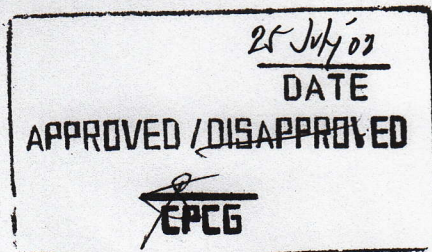 25 July 03
DATE
APPROVED / DISAPPROVED
CPCG